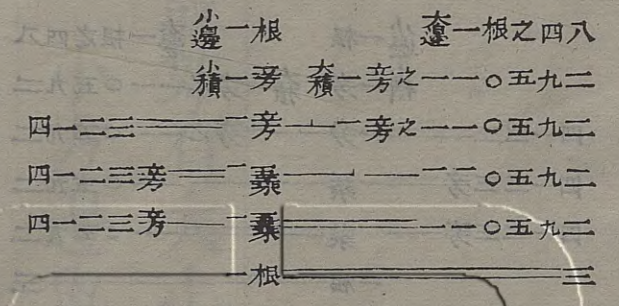 小邊一根 大邊一根之四八
小積一㫄 大積一㫄之一一〇五九二
四一二三══一㫄—一㫄之一一〇五九二
四一二三㫄══一——一一〇五九二
四一二三㫄—一══一一〇五九二
一根══三